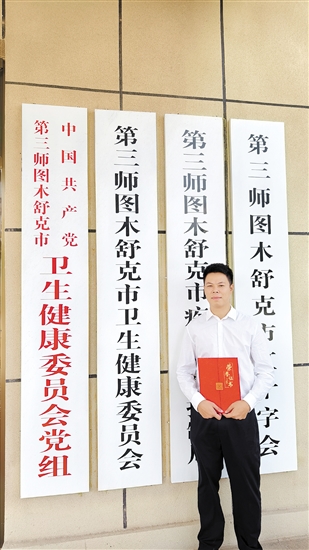 中国共产党
第三师图木舒克市
卫生健康委员会党组
第三师图木舒克市卫生健康委员会
第三师图木舒克市疾
第三师图木舒克市十字会
荣誉证书